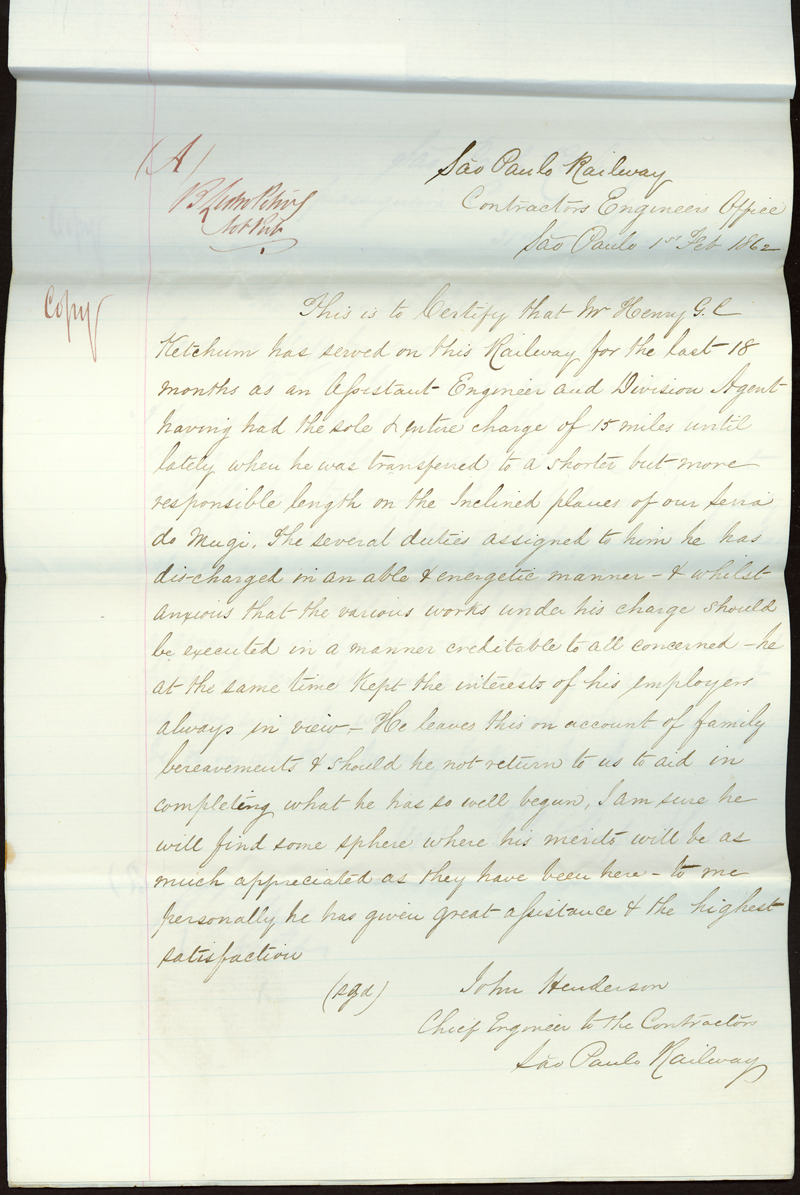 (A)
São Paulo Railway
Contractors Engineers Office
São Paulo 1st Feb 1862
Copy
This is to Certify that Mr Henry G. C
Ketchum has served on this Railway for the last 18
months as an Assistant Engineer and Division Agent
having had the sole & entire charge of 15 miles until
lately when he was transferred to a shorter but more
responsible length on the Inclined planes of our Serra
do Mugi. The several duties assigned to him he has
discharged in an able & energetic manner - & whilst
anxious that the various works under his charge should
be executed in a manner creditable to all concerned - he
at the same time kept the interests of his employers
always in view. - He leaves this on account of family
bereavements & should he not return to us to aid in
completing what he has so well begun, I am sure he
will find some sphere where his merits will be as
much appreciated as they have been here - to me
personally he has given great assistance & the highest
satisfaction
(sgd) John Henderson
Chief Engineer to the Contractors
São Paulo Railway